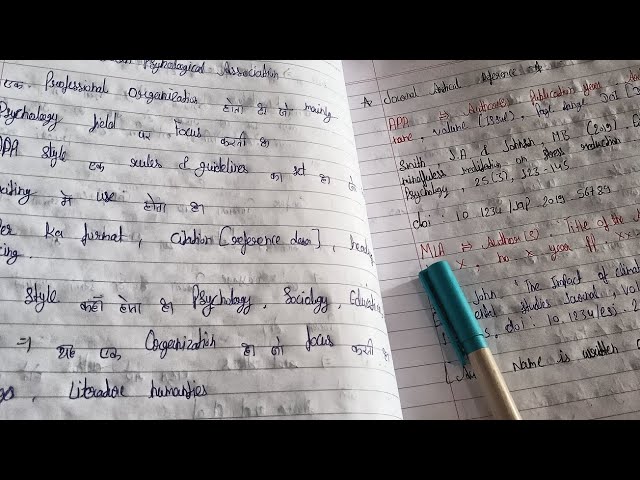 Psychological Association
एक Professional Organization होता है जो mainly
Psychology field पर focus करती है
APA style एक rules & guidelines का set है जो
writing में use होता है।
ka format, citation [reference dena], heading
style कहाँ होता है Psychology, Sociology, Education
⇒ यह एक Organization है जो focus करती है
Literature humanities
A Journal Article reference
APA ⇒ Author(s). Publication year
name, volume (issue), Page range. Doi
Smith J.A. & Johnson, M.B. (2019)
mindfulness meditation on stress reduction
Psychology, 25(3), 123-145
doi: 10.1234/Jap.2019.56789
MLA ⇒ Author(s). Title of the
X, no X, year, PP. XX-XX
John. "The Impact of
Studies Journal, vol
doi: 10.1234/es
Name is written